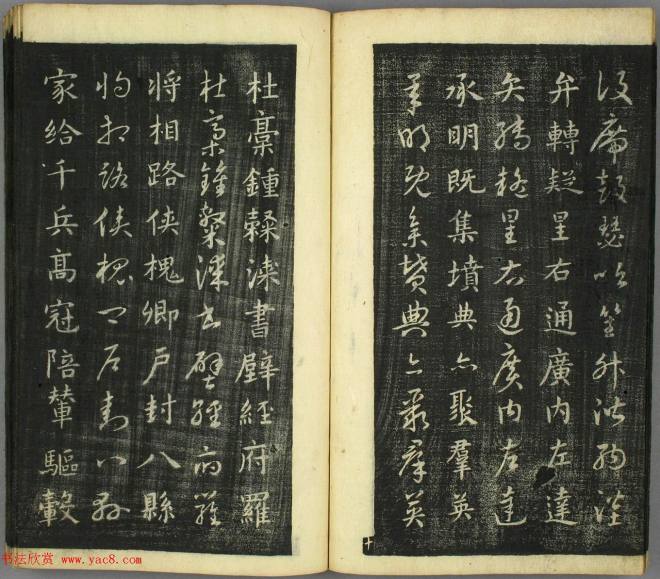 設席鼓瑟吹笙升階納陛
弁轉疑星右通廣內左達
弁轉疑星右通廣內左達
承明既集墳典亦聚羣英
承明既集墳典亦聚羣英
十
杜稾鍾隸漆書壁經府羅
杜稾鍾隸漆書壁經府羅
將相路俠槐卿戶封八縣
將相路俠槐卿戶封八縣
家給千兵高冠陪輦驅轂
书法欣赏 www.yac8.com